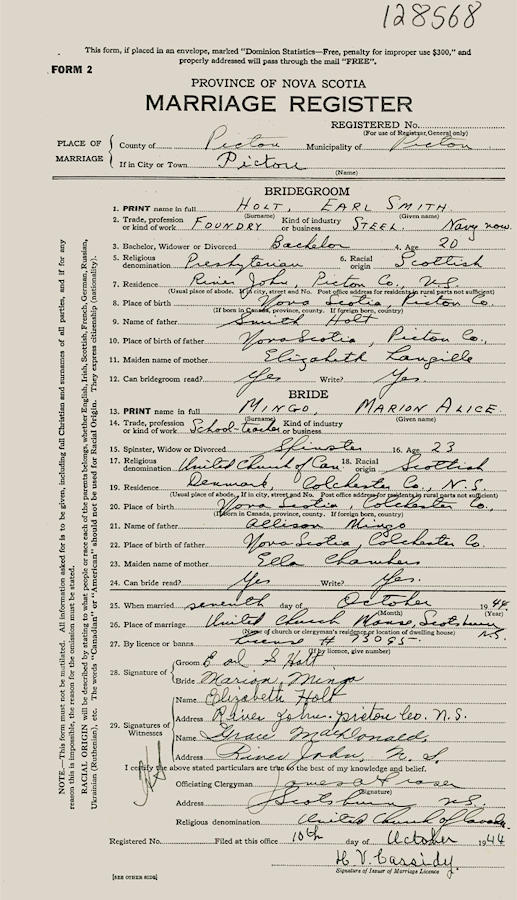 128568
This form, if placed in an envelope, marked "Dominion Statistics—Free, penalty for improper use $300," and
properly addressed will pass through the mail "FREE".
FORM 2
PROVINCE OF NOVA SCOTIA
MARRIAGE REGISTER
REGISTERED No.
(For use of Registrar General only)
PLACE OF MARRIAGE
County of Pictou Municipality of Pictou
If in City or Town Pictou
(Name)
BRIDEGROOM
1. PRINT name in full HOLT, EARL SMITH.
(Surname) (Given name)
2. Trade, profession or kind of work FOUNDRY Kind of industry or business STEEL. Navy now.
3. Bachelor, Widower or Divorced Bachelor 4. Age 20
5. Religious denomination Presbyterian 6. Racial origin Scottish
7. Residence River John, Pictou Co., N.S.
(Usual place of abode. If in city, street and No. Post office address for residents in rural parts not sufficient)
8. Place of birth Nova Scotia, Pictou Co.
(If born in Canada, province, county. If foreign born, country)
9. Name of father Smith Holt
10. Place of birth of father Nova Scotia, Pictou Co.,
11. Maiden name of mother Elizabeth Langille
12. Can bridegroom read? Yes Write? Yes.
BRIDE
13. PRINT name in full MINGO, MARION ALICE.
(Surname) (Given name)
14. Trade, profession or kind of work School-teacher Kind of industry or business
15. Spinster, Widow or Divorced Spinster 16. Age 23
17. Religious denomination United Church of Can 18. Racial origin Scottish
19. Residence Denmark, Colchester Co., N.S.
(Usual place of abode. If in city, street and No. Post office address for residents in rural parts not sufficient)
20. Place of birth Nova Scotia, Colchester Co.,
(If born in Canada, province, county. If foreign born, country)
21. Name of father Allison Mingo
22. Place of birth of father Nova Scotia Colchester Co.
23. Maiden name of mother Ella Chambers
24. Can bride read? Yes Write? Yes.
25. When married seventh day of October 1944
(Month) (Year)
26. Place of marriage United Church Manse, Scotsburn N.S.
(Name of church or clergyman's residence or location of dwelling house)
27. By licence or banns License # 13095
(If by licence, give number)
28. Signature of
Groom Earl S Holt
Bride Marion Mingo
29. Signatures of Witnesses
Name Elizabeth Holt
Address River John. Pictou Co. N.S.
Name Grace MacDonald,
Address River John N.S.
I certify the above stated particulars are true to the best of my knowledge and belief.
Officiating Clergyman James A Fraser
(Signature)
Address Scotsburn N.S.
Religious denomination United Church of Canada
Registered No. Filed at this office 10th day of October 1944
H. V. Cassidy.
Signature of Issuer of Marriage Licence
[SEE OTHER SIDE]
NOTE.—This form must not be mutilated. All information asked for is to be given, including full Christian and surnames of all parties, and if for any
reason this is impossible, the reason for the omission must be stated.
RACIAL ORIGIN will be described by stating to what people or race each of the parents belongs, whether English, Irish, Scottish, French, German, Russian,
Ukrainian (Ruthenian), etc. The words "Canadian" or "American" should not be used for Racial Origin. They express citizenship (nationality).